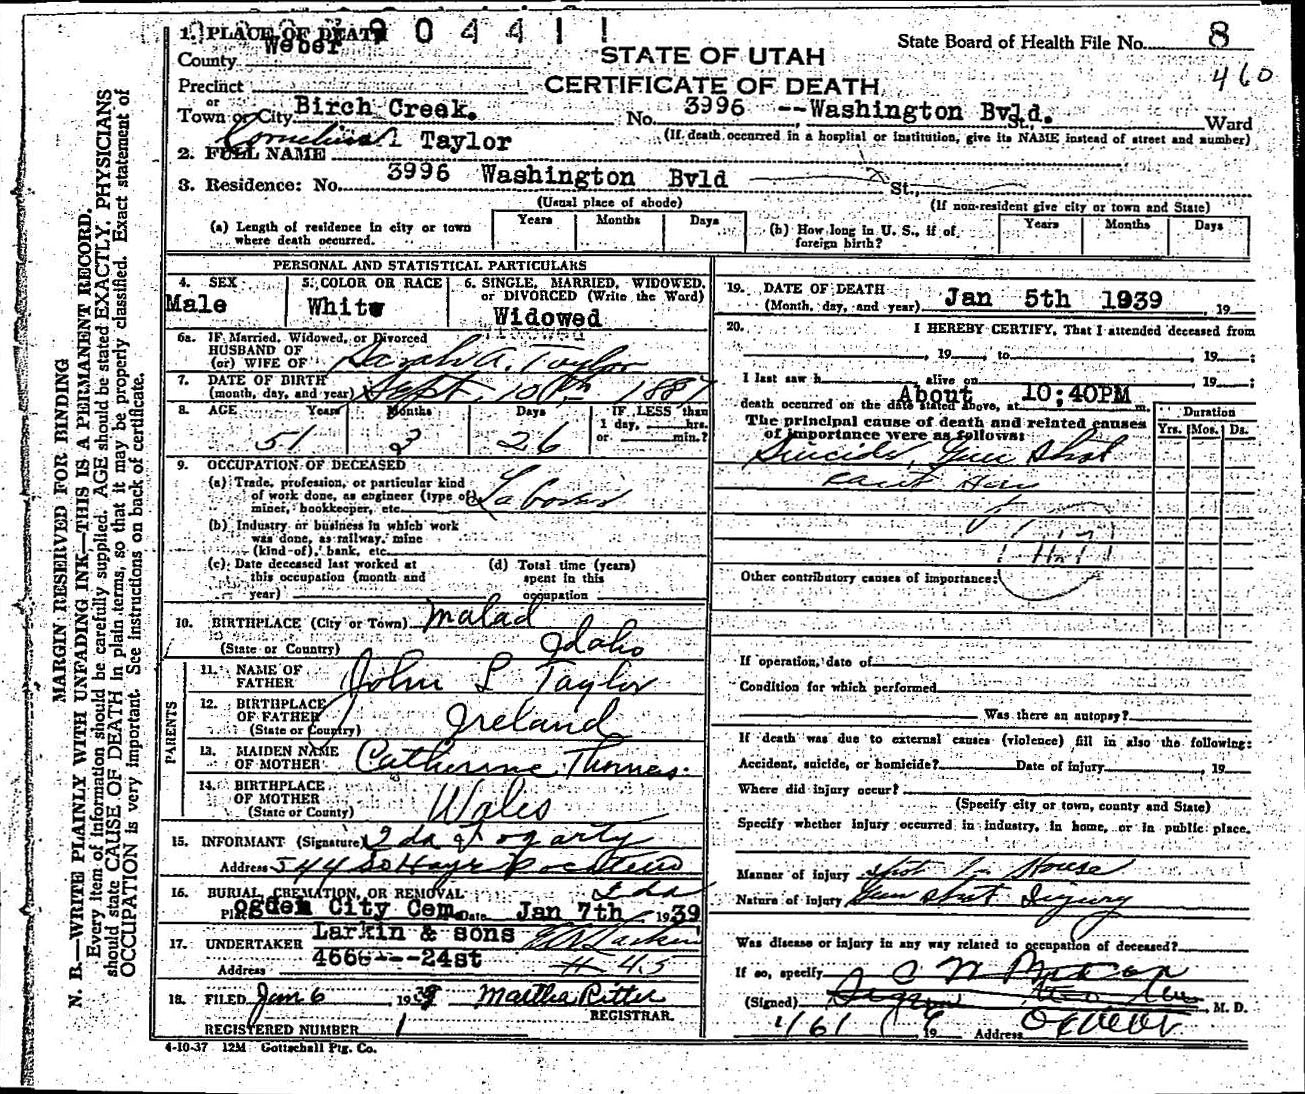 904411
1. PLACE OF DEATH
County Weber
STATE OF UTAH
CERTIFICATE OF DEATH
State Board of Health File No. 8
460
Precinct
or
Town or City Birch Creek. No. 3996 --Washington Bvld. St., Ward
(If death occurred in a hospital or institution, give its NAME instead of street and number)
2. FULL NAME Cornelius Taylor
3. Residence: No. 3996 Washington Bvld St.,
(Usual place of abode) (If non-resident give city or town and State)
(a) Length of residence in city or town where death occurred. Years Months Days
(b) How long in U. S., if of foreign birth? Years Months Days
PERSONAL AND STATISTICAL PARTICULARS
4. SEX Male
5. COLOR OR RACE White
6. SINGLE, MARRIED, WIDOWED, or DIVORCED (Write the Word) Widowed
6a. IF Married, Widowed, or Divorced
HUSBAND OF
(or) WIFE OF Sarah A. Taylor
7. DATE OF BIRTH
(month, day, and year) Sept. 10th 1887
8. AGE Years 51 Months 3 Days 26
IF LESS than
1 day, hrs.
or min.?
9. OCCUPATION OF DECEASED
(a) Trade, profession, or particular kind
of work done, as engineer (type of)
miner, bookkeeper, etc. Laborer
(b) Industry or business in which work
was done, as railway, mine
(kind of), bank, etc.
(c) Date deceased last worked at
this occupation (month and
year)
(d) Total time (years)
spent in this
occupation
10. BIRTHPLACE (City or Town) Malad
(State or Country) Idaho
PARENTS
11. NAME OF FATHER John L Taylor
12. BIRTHPLACE OF FATHER
(State or Country) Ireland
13. MAIDEN NAME OF MOTHER Catherine Thomas
14. BIRTHPLACE OF MOTHER
(State or County) Wales
15. INFORMANT (Signature) Ida Fogarty
Address 544 So Hayes Pocatello
Ida
16. BURIAL, CREMATION, OR REMOVAL
Place Ogden City Cem. Date Jan 7th 1939
17. UNDERTAKER Larkin & sons
Address 466----24st # 45
18. FILED Jan 6 1939 Martha Ritter
REGISTRAR.
REGISTERED NUMBER 1
4-10-37 12M Gottschall Ptg. Co.
19. DATE OF DEATH
(Month, day, and year) Jan 5th 1939 , 19
20. I HEREBY CERTIFY, That I attended deceased from
, 19 , to , 19 ;
I last saw h alive on , 19 ;
death occurred on the date stated above, at About 10:40PM m.
The principal cause of death and related causes
of importance were as follows:
Duration
Yrs. Mos. Ds.
Suicide, Gun Shot
Other contributory causes of importance:
If operation, date of
Condition for which performed
Was there an autopsy?
If death was due to external causes (violence) fill in also the following:
Accident, suicide, or homicide? Date of injury , 19
Where did injury occur?
(Specify city or town, county and State)
Specify whether injury occurred in industry, in home, or in public place.
Manner of injury House
Nature of injury Gun shot Injury
Was disease or injury in any way related to occupation of deceased?
If so, specify
(Signed) , M. D.
19 Address Ogden
MARGIN RESERVED FOR BINDING
N. B.—WRITE PLAINLY WITH UNFADING INK—THIS IS A PERMANENT RECORD.
Every item of information should be carefully supplied. AGE should be stated EXACTLY. PHYSICIANS
should state CAUSE OF DEATH in plain terms, so that it may be properly classified. Exact statement of
OCCUPATION is very important. See instructions on back of certificate.